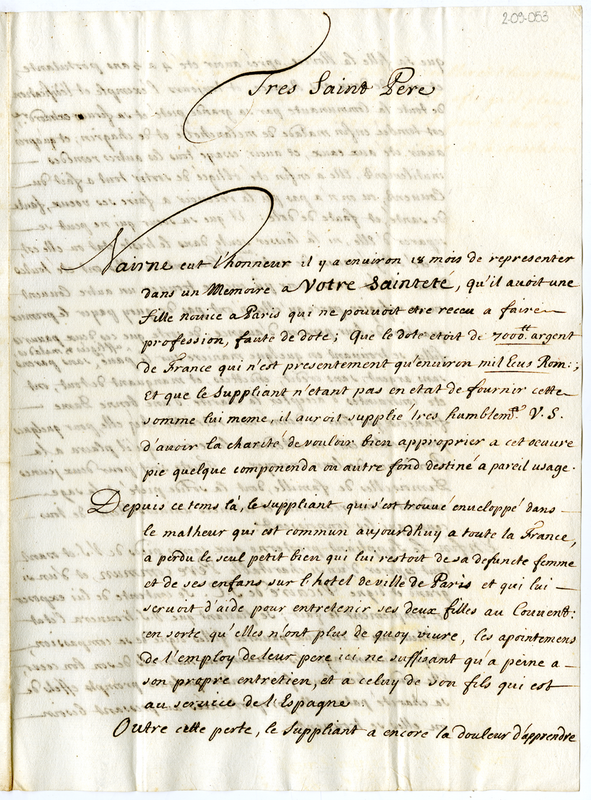 2-09-053
Tres Saint Pere
Nairne eut l'honneur il y a environ 18 mois de representer
dans un Memoire a Votre Sainteté, qu'il avoit une
fille novice a Paris qui ne pouvoit etre receu a faire
profession, faute de dote; Que le dote etoit de 7000.tt argent
de France qui n'est presentement qu'environ mil Ecus Rom:;
Et que le Suppliant n'etant pas en etat de fournir cette
somme lui meme, il auroit supplié tres humblemt. V. S.
d'avoir la charité de vouloir bien approprier a cet oeuvre
pie quelque componenda ou autre fond destiné a pareil usage.
Depuis ce tems là, le suppliant qui s'est trouvé enveloppé dans
le malheur qui est commun aujourdhuy a toute la France,
a perdu le seul petit bien qui lui restoit de sa defuncte femme
et de ses enfans sur l'hotel de ville de Paris et qui lui
servoit d'aide pour entretenir ses deux filles au Couvent:
en sorte qu'elles n'ont plus de quoy vivre, les apointemens
de l'employ de leur pere ici ne suffisant qu'a peine a
son propre entretien, et a celuy de son fils qui est
au service de l'Espagne
Outre cette perte, le Suppliant a encore la douleur d'apprendre